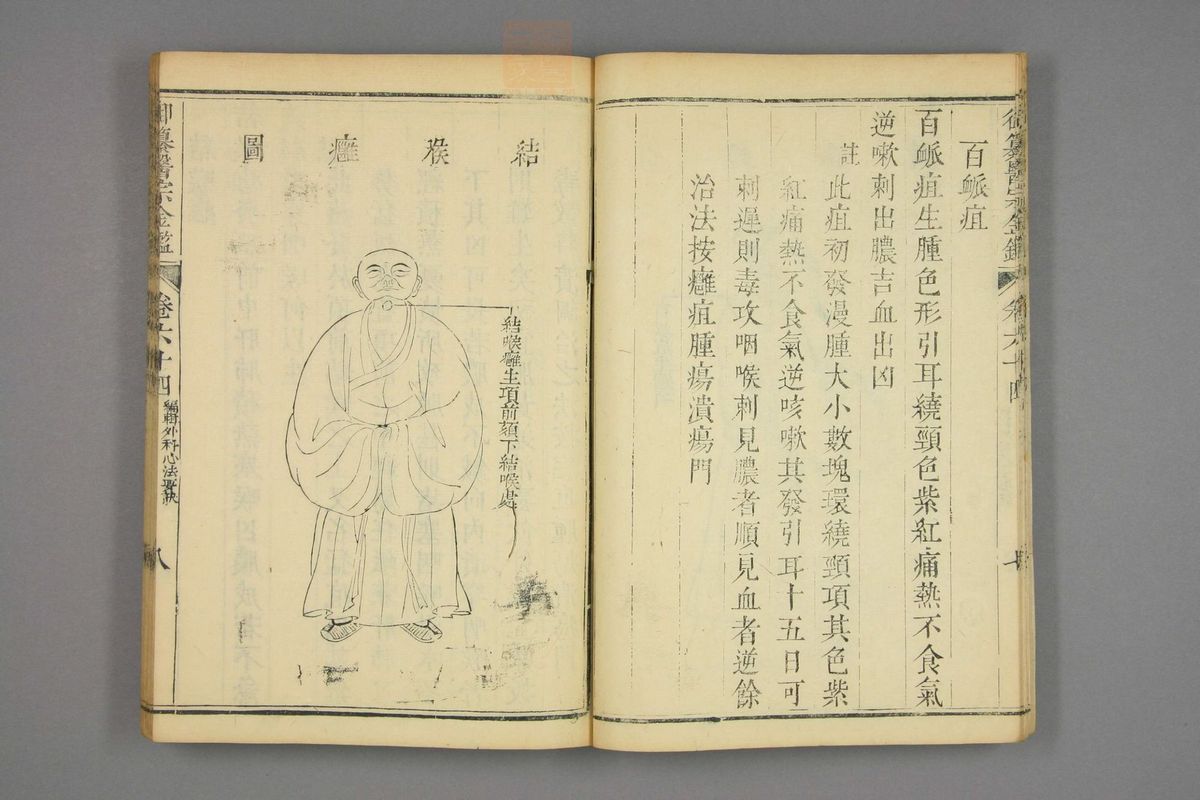 百脈疽
百脈疽生腫色形引耳繞頸色紫紅痛熱不食氣
逆嗽刺出膿吉血出凶
註
此疽初發漫腫大小數塊環繞頸項其色紫
紅痛熱不食氣逆咳嗽其發引耳十五日可
刺遲則毒攻咽喉刺見膿者順見血者逆餘
治法按癰疽腫瘍潰瘍門
結喉癰圖
結喉癰生項前頦下結喉處
御纂醫宗金鑑
卷六十四
編輯外科心法要訣
八